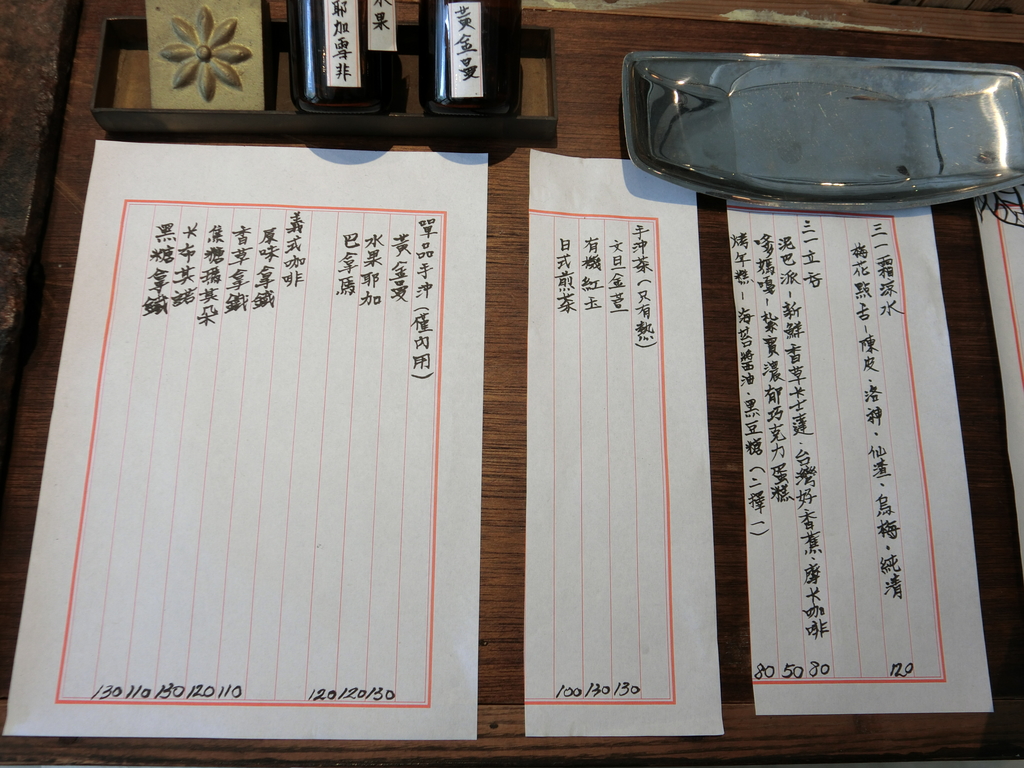 耶加雪菲
水果
黃金曼
三一霜涼水
梅花點舌－陳皮、洛神、仙渣、烏梅、純清
120
三一立吞
泥巴派－新鮮香草卡士達、台灣好香蕉、摩卡咖啡
80
嗲媽嘎－紮實濃郁巧克力蛋糕
50
烤年糕－海苔醬油、黑豆糖（二擇一）
80
手沖茶（只有熱）
文旦金萱
130
有機紅玉
130
日式煎茶
100
單品手沖（僅內用）
黃金曼
130
水果耶加
120
巴拿馬
120
義式咖啡
原味拿鐵
110
香草拿鐵
120
焦糖瑪其朵
130
卡布其諾
110
黑糖拿鐵
130